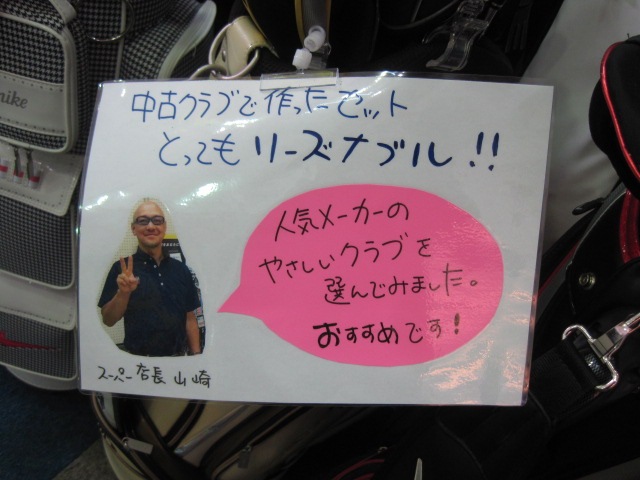 中古クラブで作ったセット
とってもリーズナブル!!
人気メーカーの
やさしいクラブを
選んでみました。
おすすめです!
スーパー店長 山崎
nike